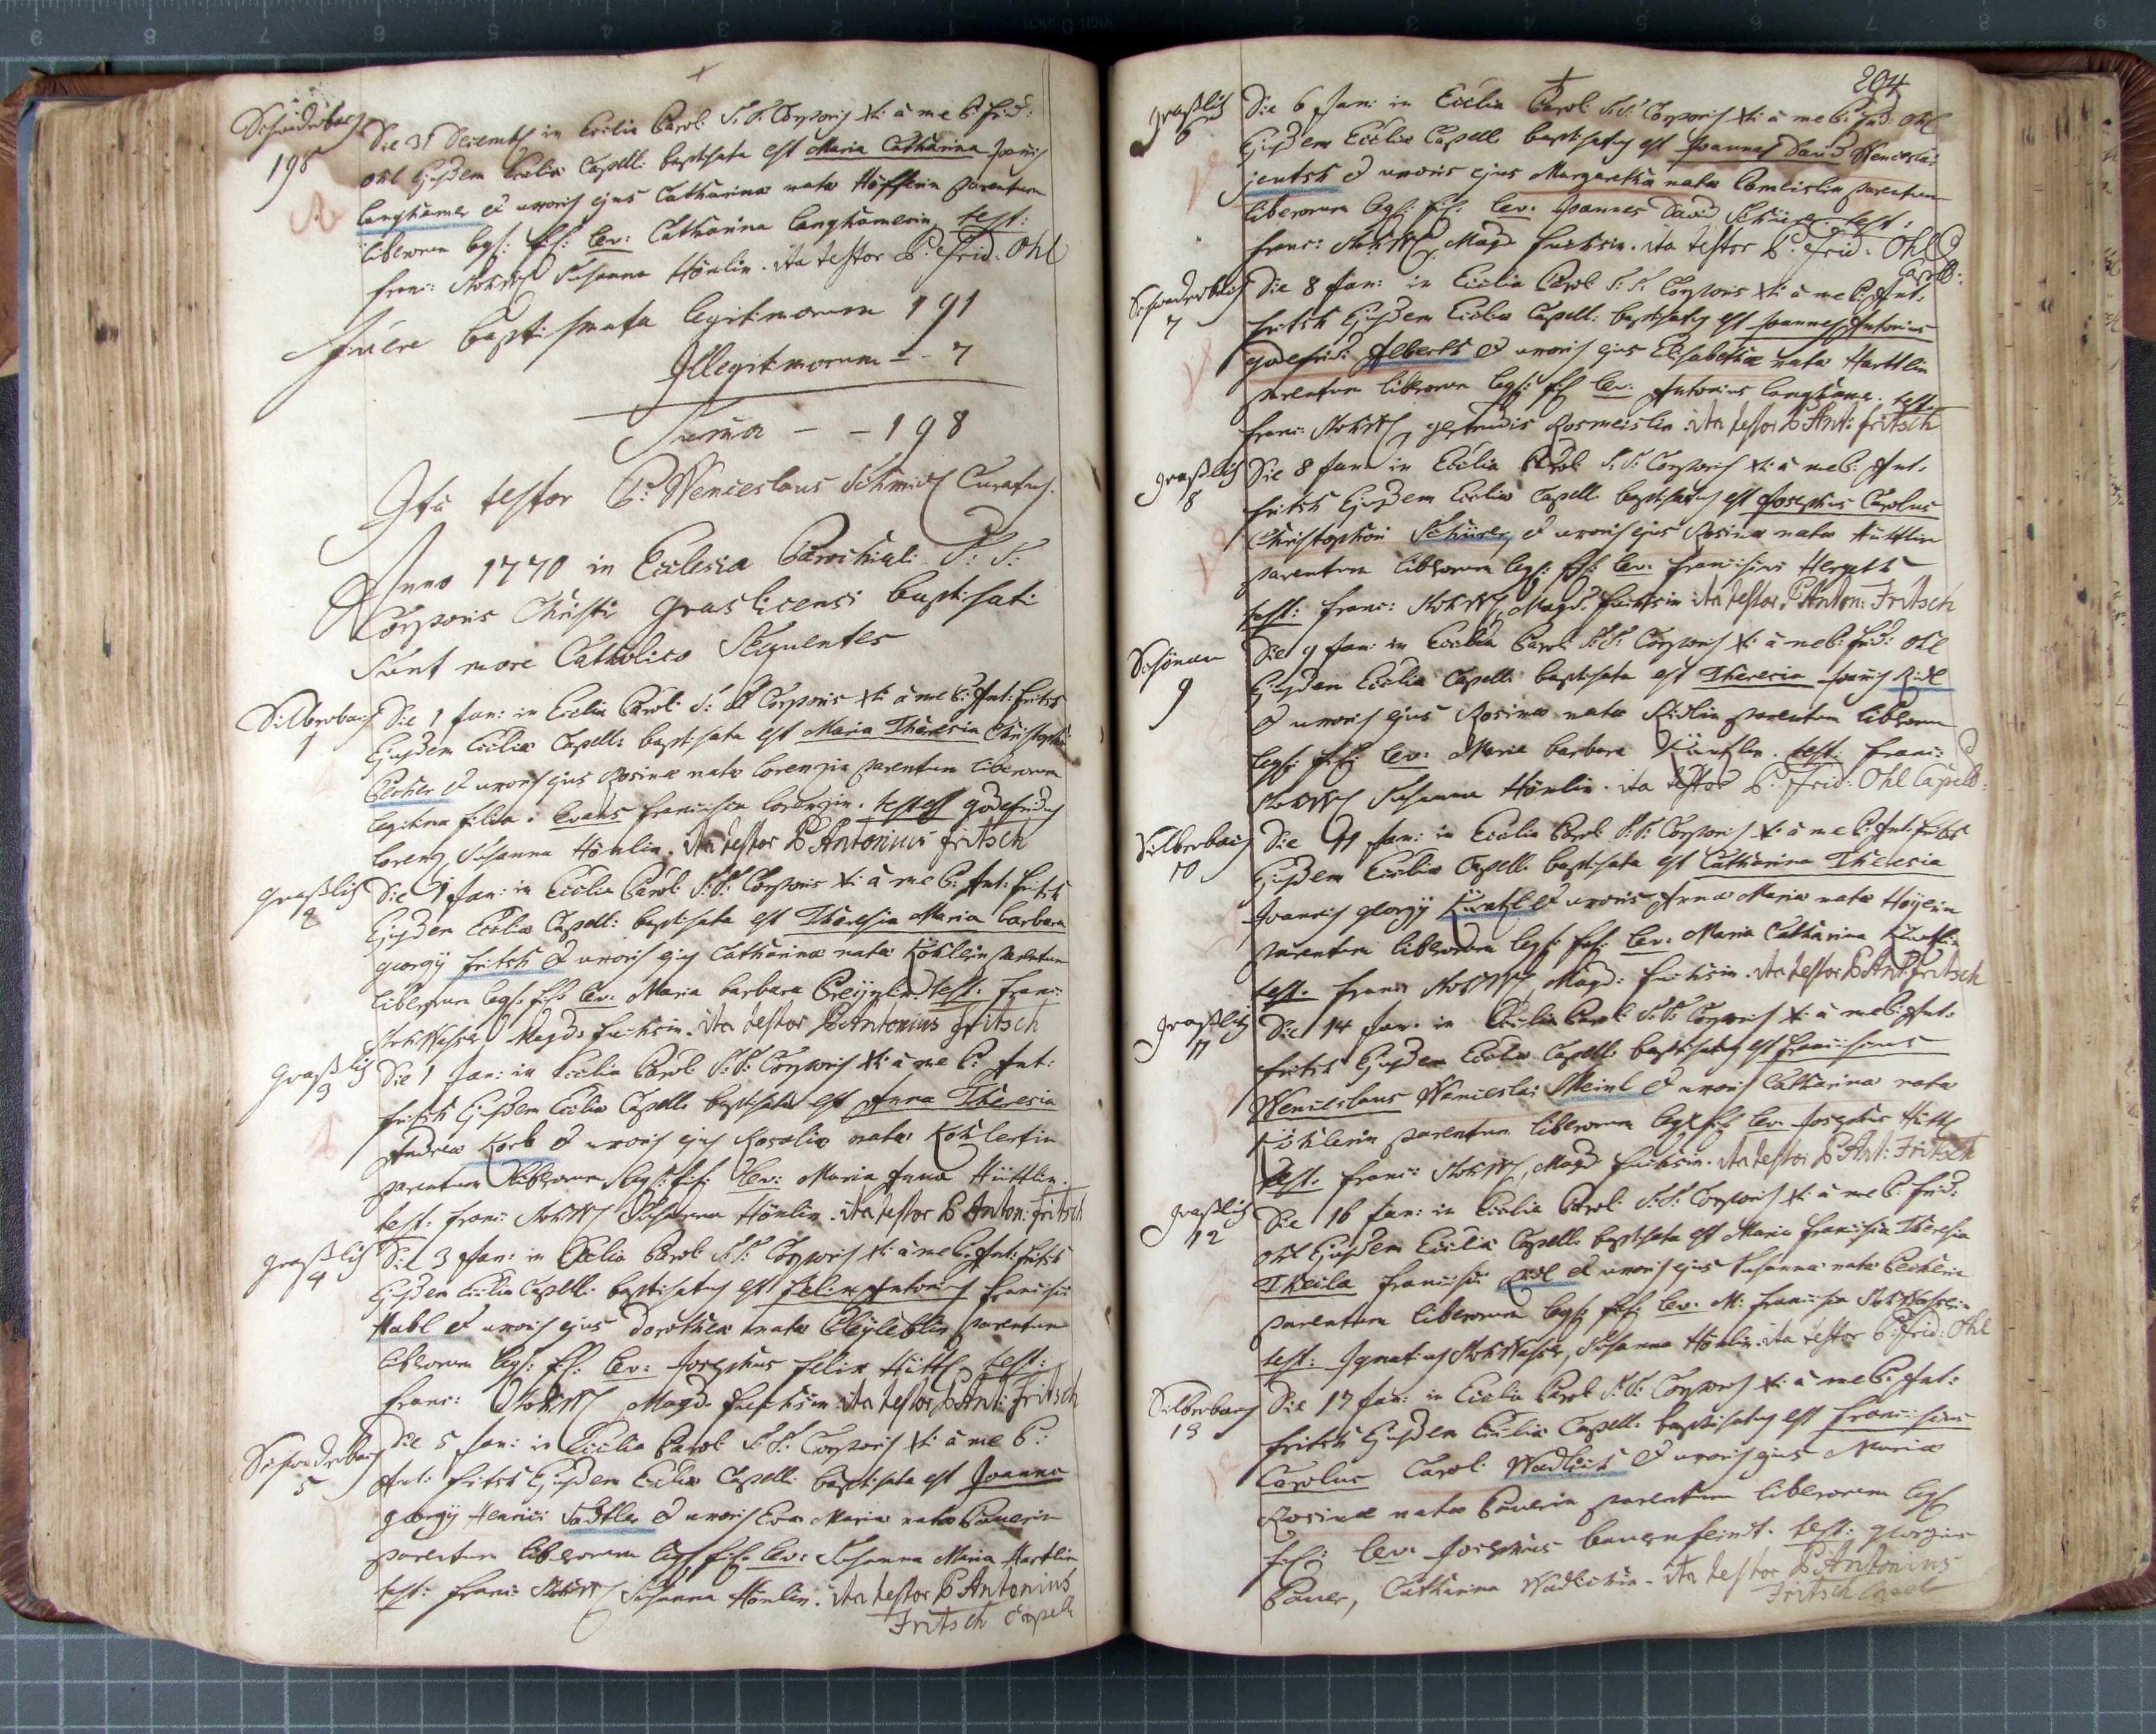 Schwaderbach
198
Die 31 Decemb: in Ecclia Paroli: S: S: Corporis Xti: à me P: Frid:
Ohl Ejusdem Ecclia Capell: baptisata est Maria Catharina Joannis
Langhamer et uxoris ejus Catharina nata Höfferin parentum
liberorum leg: fil: lev: Catharina Langhamerin, test:
Franc: StokW Susanna Hönlin. ita testor P: Frid: Ohl
Fuere baptismata legitimorum 191
Illegitimorum - - 7
Suma - - 198
Ita testor P: Wenceslaus Schmidt Curatus.
Anno 1770 in Ecclesia Parochiali S: S:
Corporis Christi Graslicensi baptisati
sunt more Catholico Sequentes
Silberbach
1
Die 1 Jan: in Ecclia Paroli: S: S: Corporis Xti: à me P: Ant: Fritsch
Ejusdem Ecclia Capell: baptisata est Maria Theresia Christophi
Pecher et uxoris ejus Rosina nata Lorenzin parentum liberorum
legitima filia. levans Francisca Lorenzin. testes Godefridus
Lorenz Susanna Hönlin. ita testor P Antonius Fritsch
Graßlitz
2
Die 1 Jan: in Ecclia Paroli: S: S: Corporis Xti: à me P: Ant: Fritsch
Ejusdem Ecclia Capell: baptisata est Theresia Maria Barbara
Georgÿ Fritsch et uxoris ejus Catharina nata Köhlerin parentum
liberorum leg: fil: lev: Maria Barbara test: Franc:
StokWasser Magd: Fuchsin. ita testor P Antonius Fritsch
Graßlitz
3
Die 1 Jan: in Ecclia Paroli: S: S: Corporis Xti: à me P: Ant:
Fritsch Ejusdem Ecclia Capell: baptisata est Anna Theresia
Andrea Korb et uxoris ejus Rosalia nata Kohlertin
parentum liberorum leg: fil: lev: Maria Anna Hüttlin.
test: Franc: StokW Susanna Hönlin. ita testor P Anton: Fritsch
Graßlitz
4
Die 3 Jan: in Ecclia Paroli: S: S: Corporis Xti: à me P: Ant: Fritsch
Ejusdem Ecclia Capell: baptisatus est Felix Antonius Francisci
Habl et uxoris ejus Dorothea nata parentum
liberorum leg: fil: lev: Josephus Felix Hüttl test:
Franc: StokW Magd: Fuchsin. ita testor P Ant: Fritsch
Schwaderbach
5
Die 5 Jan: in Ecclia Paroli: S: S: Corporis Xti: à me P:
Ant: Fritsch Ejusdem Ecclia Capell: baptisata est Joanna
Georgÿ Henrici Sattler et uxoris Eva Maria nata Pauerin
parentum liberorum leg: fil: lev: Susanna Maria Hartlin
test: Franc: StokW Susanna Hönlin. ita testor P Antonius
Fritsch Capell
204
Graßlitz
6
Die 6 Jan: in Ecclia Paroli: S: S: Corporis Xti: à me P: Frid: Ohl
Ejusdem Ecclia Capell: baptisatus est Joannes David Wenceslai
Jentsch et uxoris ejus Margaretha nata parentum
liberorum leg: fil: lev: Joannes David Schürer. test:
Franc: StokW, Magd: Fuchsin. ita testor P: Frid: Ohl
Capell:
Schwaderbach
7
Die 8 Jan: in Ecclia Paroli: S: S: Corporis Xti: à me P: Ant:
Fritsch Ejusdem Ecclia Capell: baptisatus est Joannes Antonius
Godefridi Alberth et uxoris ejus Elisabetha nata Harttlin
parentum liberorum leg: fil: lev: Antonius Langhamer. test.
Franc: StokW, Gertrudis Rosmeislin. ita testor P Ant: Fritsch
Graßlitz
8
Die 8 Jan: in Ecclia Paroli: S: S: Corporis Xti: à me P: Ant:
Fritsch Ejusdem Ecclia Capell: baptisatus est Josephus Carolus
Christophori Schürer, et uxoris ejus Rosina nata Hüttlin
parentum liberorum leg: fil: lev: Franciscus
test: Franc: StokW, Magd: Fuchsin ita testor P Anton: Fritsch
Schönau
9
Die 9 Jan: in Ecclia Paroli: S: S: Corporis Xti: à me P: Frid: Ohl
Ejusdem Ecclia Capell: baptisata est Theresia Joannis Ridl
et uxoris ejus Rosina nata Ridlin parentum liberorum
leg: fil: lev: Maria Barbara test: Franc:
StokW Susanna Hönlin. ita testor P: Frid: Ohl Capell:
Silberbach
10
Die 11 Jan: in Ecclia Paroli: S: S: Corporis Xti: à me P: Ant: Fritsch
Ejusdem Ecclia Capell: baptisata est Catharina Theresia
Joannis Georgÿ et uxoris Anna Maria nata
parentum liberorum leg: fil: lev: Maria Catharina
test: Franc: StokW, Magd: Fuchsin. ita testor P Ant Fritsch
Graßlitz
11
Die 14 Jan: in Ecclia Paroli: S: S: Corporis Xti: à me P: Ant:
Fritsch Ejusdem Ecclia Capell: baptisatus est Franciscus
Wenceslaus Wenceslai Meinl et uxoris Catharina nata
Köhlerin parentum liberorum leg: fil: lev: Josephus Hüttl
test: Franc: StokW, Magd: Fuchsin. ita testor P Ant: Fritsch
Graßlitz
12
Die 16 Jan: in Ecclia Paroli: S: S: Corporis Xti: à me P: Frid:
Ohl Ejusdem Ecclia Capell: baptisata est Maria Francisca Theresia
Thecla Francisci Ridl et uxoris ejus Susanna nata Pecherin
parentum liberorum leg: fil: lev: M: Francisca StokWasserin
test: Ignatius StokWasser, Susanna Hönlin. ita testor P: Frid: Ohl
Silberbach
13
Die 17 Jan: in Ecclia Paroli: S: S: Corporis Xti: à me P: Ant:
Fritsch Ejusdem Ecclia Capell: baptisatus est Franciscus
Carolus Caroli Wadlich et uxoris ejus Maria
Rosina nata Pauerin parentum liberorum leg:
fil: lev: Josephus Bauernfeindt. test: Georgius
Pauer, Catharina Wadlichin. ita testor P Antonius
Fritsch Capell